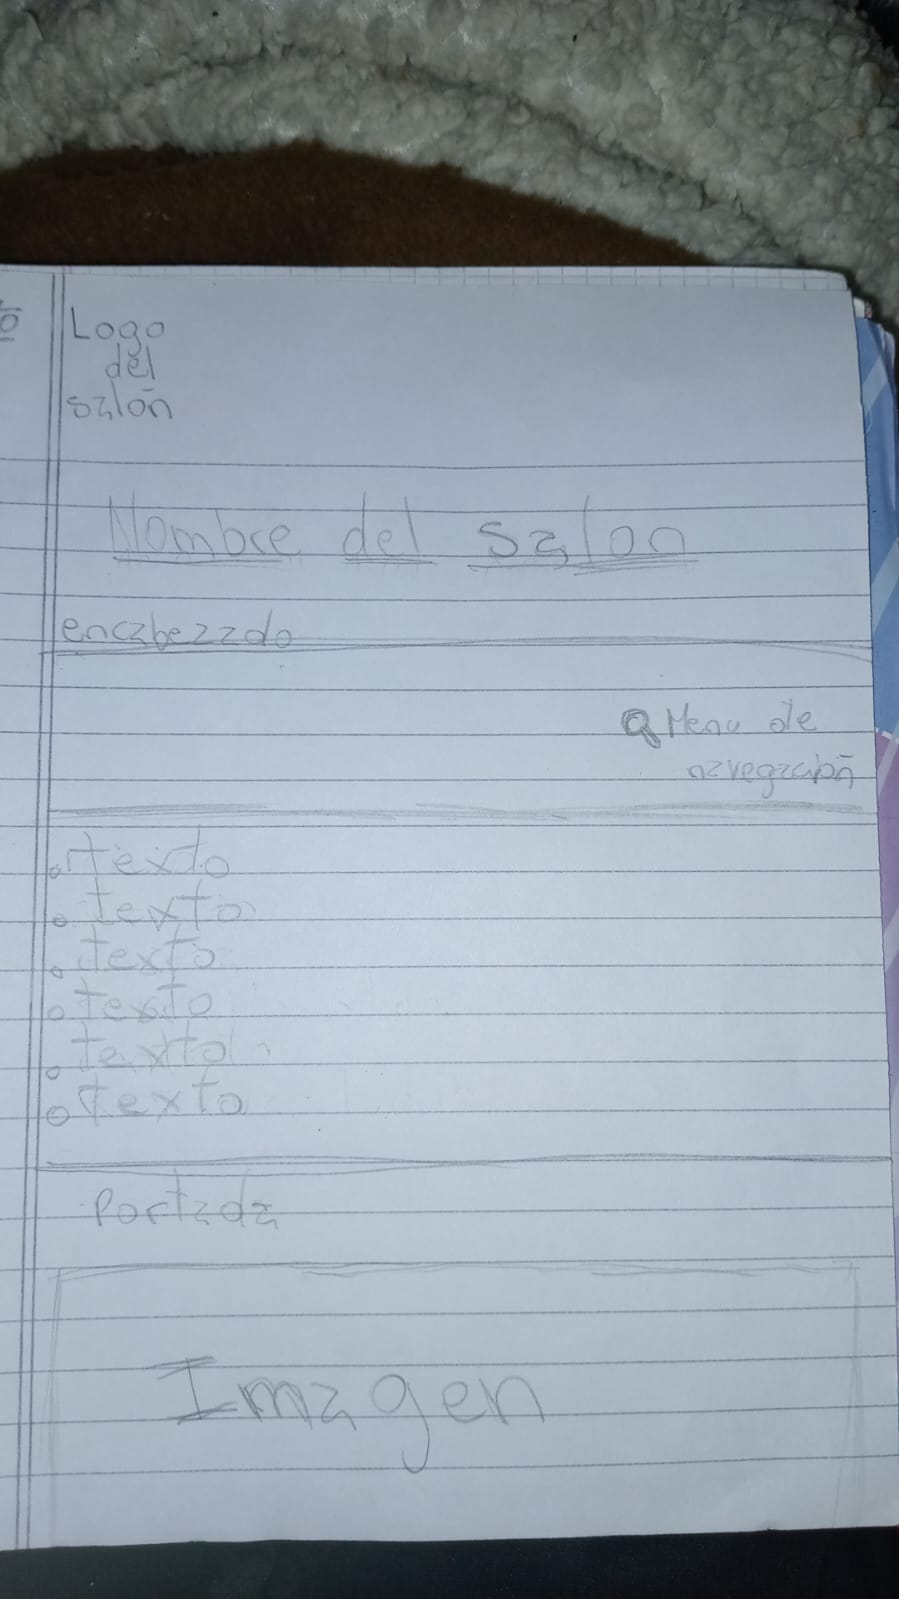 Logo
del
salón
Nombre del salon
encabezado
Menu de
navegación
texto
texto
texto
texto
texto
texto
Portada
Imagen